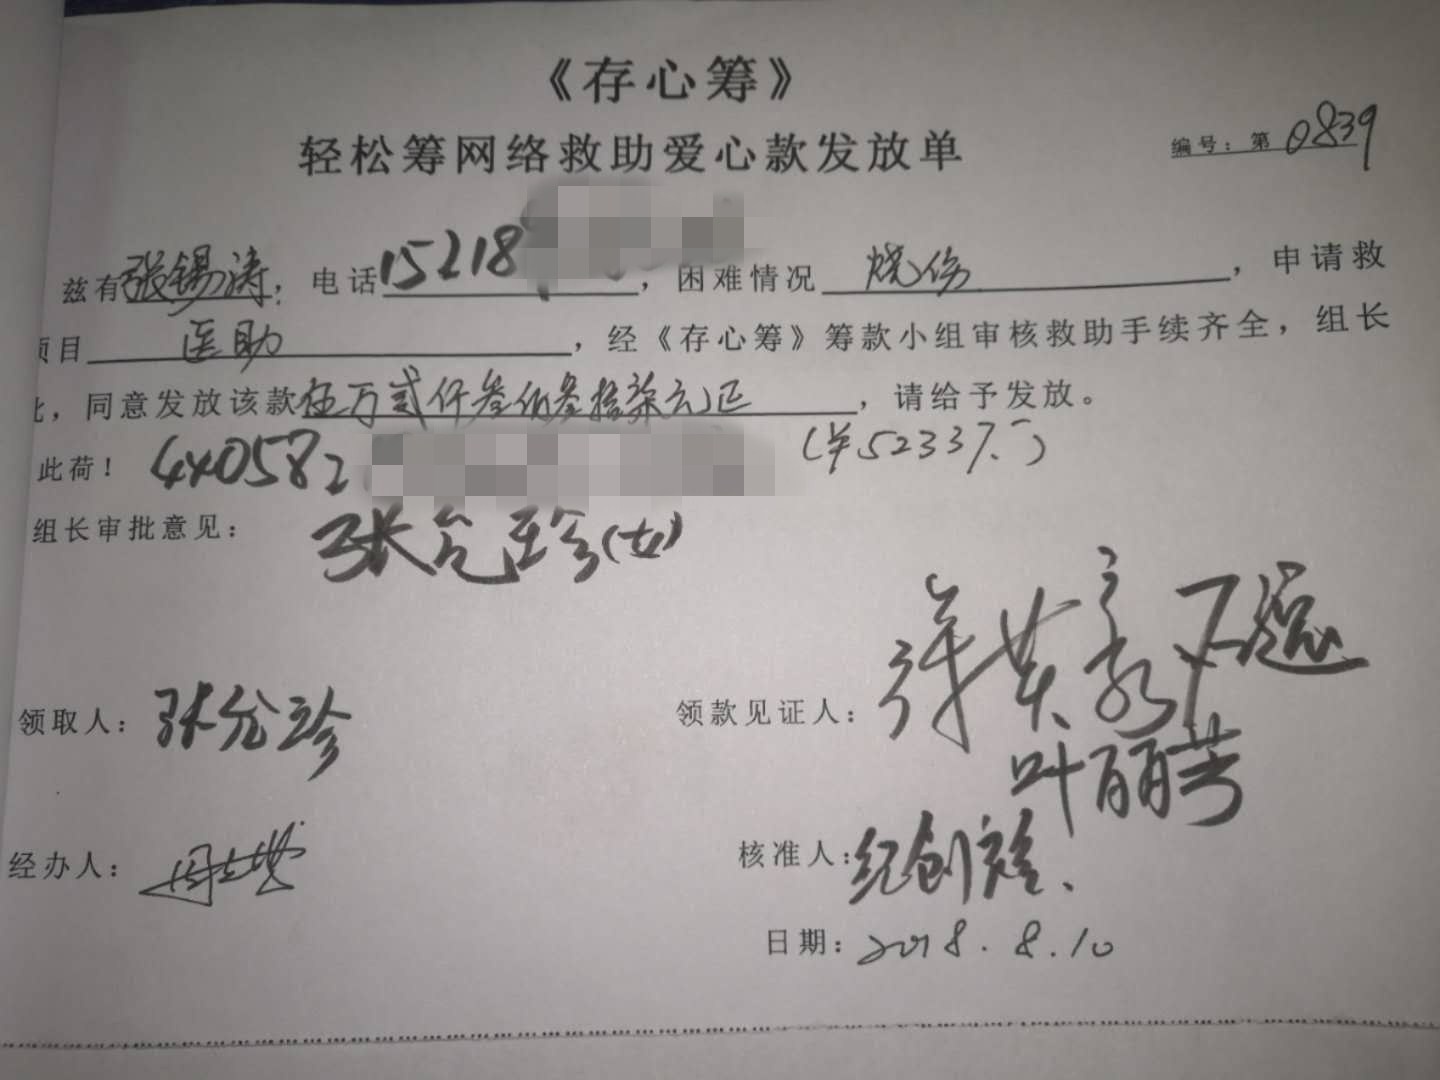 《存心筹》
轻松筹网络救助爱心款发放单
编号：第 0839
兹有张锡涛，电话15218，困难情况 烧伤，申请救
项目 医助，经《存心筹》筹款小组审核救助手续齐全，组长
，同意发放该款伍万贰仟叁佰叁拾柒元正，请给予发放。
此荷！ 440582 (￥52337.-)
组长审批意见： 张允珍(女)
领取人：张允珍 领款见证人：
叶丽芳
经办人： 核准人：纪创
日期：2018.8.10